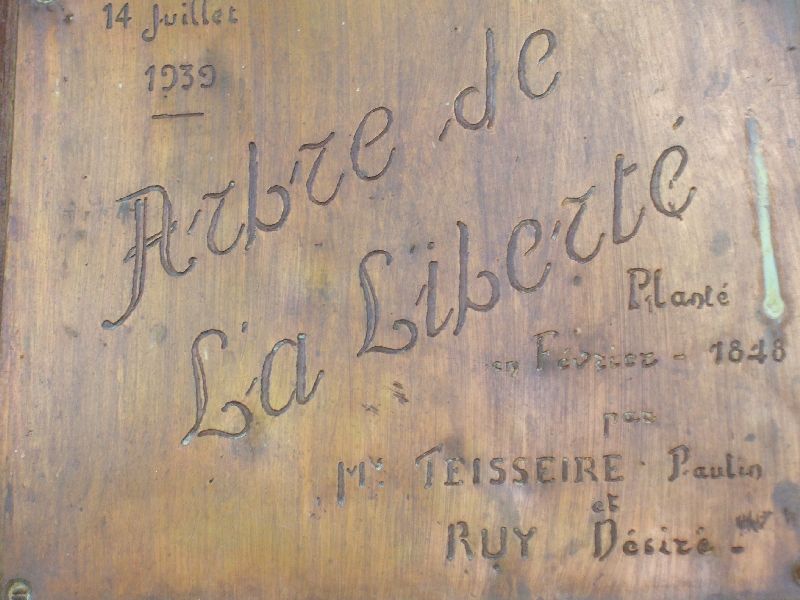 14 Juillet
1939
Arbre de
La Liberté
Planté
en Février - 1848
par
Mr TEISSEIRE Paulin
et
RUY Désiré -